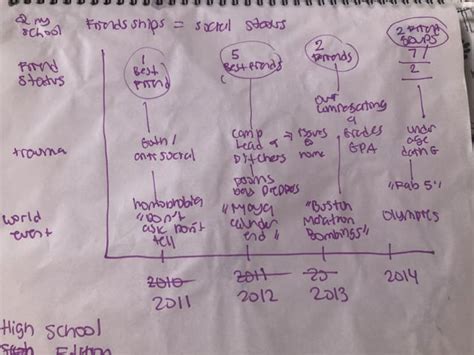 @ my school
Friendships = social status
Friend Status
1 Best Friend
5 Best Friends
2 Friends
2 Friend Groups
7/2
trauma
Goth/
anti social
camp
lead a
Ditchers
issues @
home
our
grades
GPA
under
age
world event
homophobia
"Don't
ask Don't
tell
"Maya
calender
end"
"Boston
Marathon
Bombings"
"Fab 5"
Olympics
2010
2011
2012
2013
2014
2011
20
High School
Edition